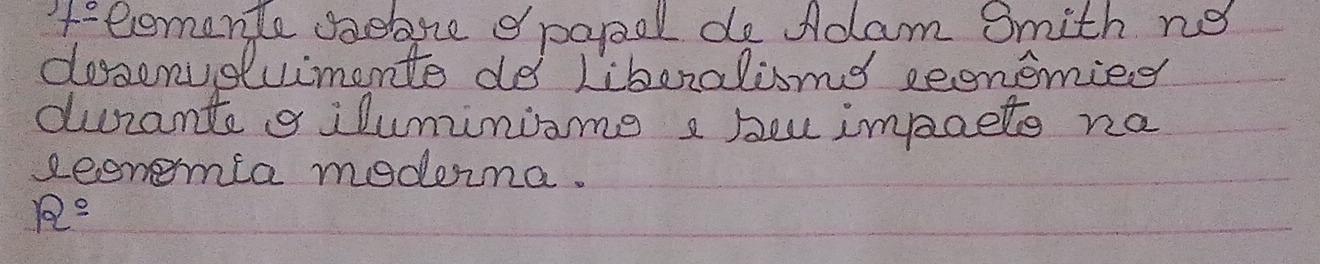 7º Comente sobre o papel de Adam Smith no
desenvolvimento do Liberalismo econômico
durante o iluminismo e seu impacto na
economia moderna.
Rº